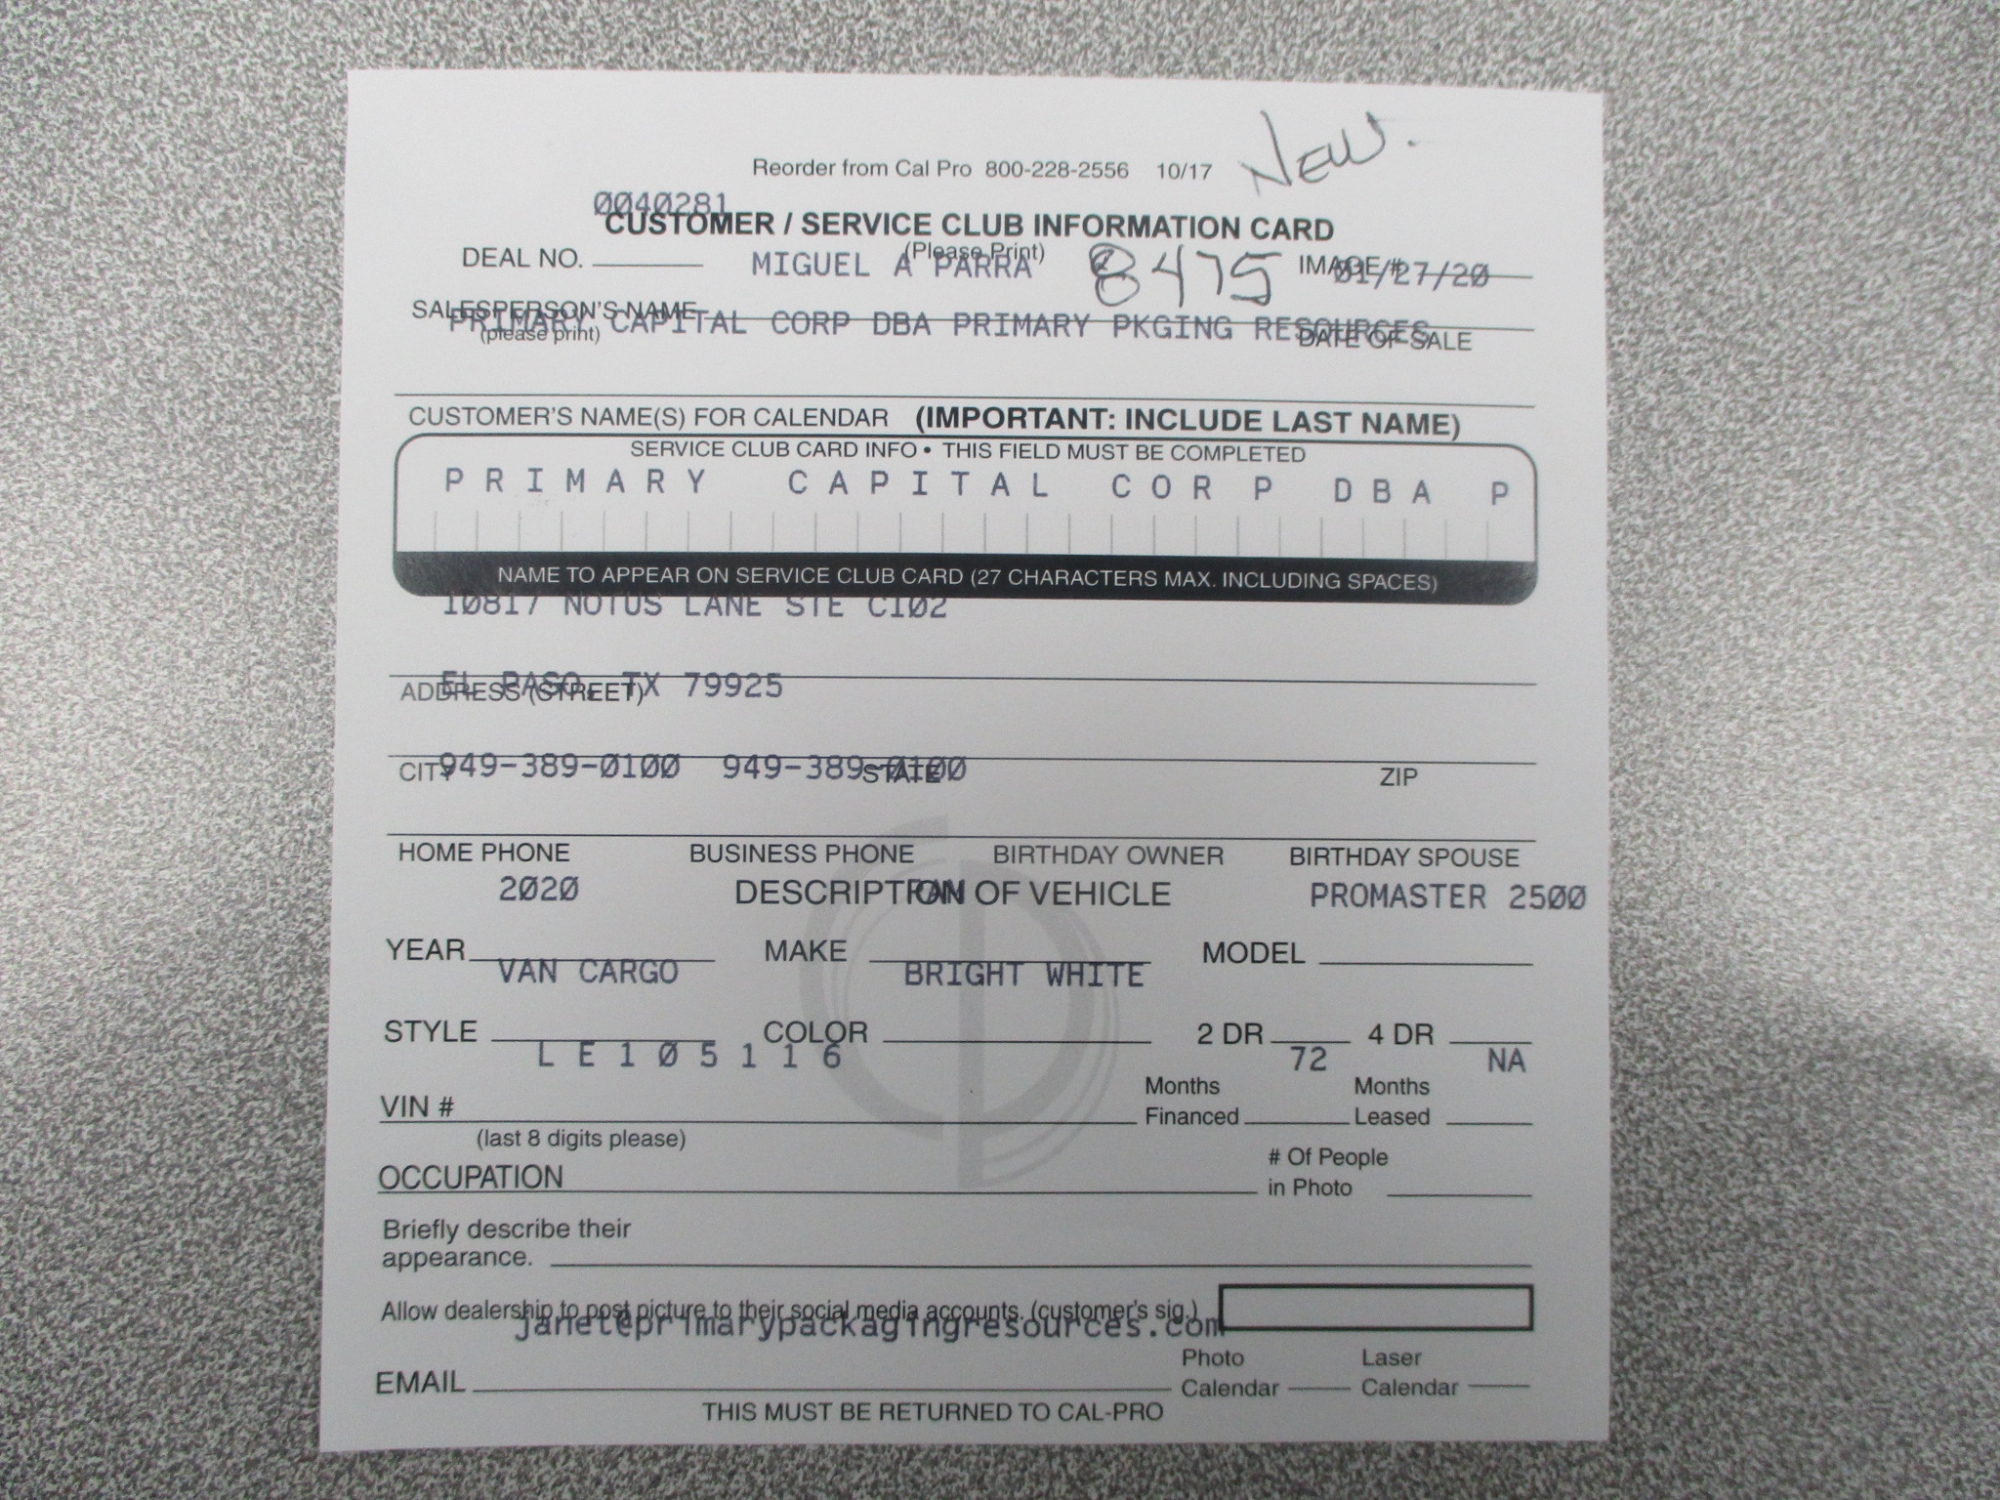 NEW.
Reorder from Cal Pro 800-228-2556 10/17
0040281
CUSTOMER / SERVICE CLUB INFORMATION CARD
(Please Print)
DEAL NO. MIGUEL A PARRA 8475 IMAGE # 01/27/20
SALESPERSON'S NAME
PRIMARY CAPITAL CORP DBA PRIMARY PKGING RESOURCES
(please print) DATE OF SALE
CUSTOMER'S NAME(S) FOR CALENDAR (IMPORTANT: INCLUDE LAST NAME)
SERVICE CLUB CARD INFO • THIS FIELD MUST BE COMPLETED
PRIMARY CAPITAL CORP DBA P
NAME TO APPEAR ON SERVICE CLUB CARD (27 CHARACTERS MAX. INCLUDING SPACES)
10817 NOTUS LANE STE C102
EL PASO, TX 79925
ADDRESS (STREET)
949-389-0100 949-389-0100
CITY STATE ZIP
HOME PHONE BUSINESS PHONE BIRTHDAY OWNER BIRTHDAY SPOUSE
2020 DESCRIPTION OF VEHICLE PROMASTER 2500
YEAR MAKE MODEL
VAN CARGO BRIGHT WHITE
STYLE COLOR 2 DR 4 DR
LE105116 72 NA
VIN # Months Financed Months Leased
(last 8 digits please)
OCCUPATION # Of People in Photo
Briefly describe their
appearance.
Allow dealership to post picture to their social media accounts. (customer's sig.)
janet@primarypackagingresources.com
EMAIL Photo Calendar Laser Calendar
THIS MUST BE RETURNED TO CAL-PRO